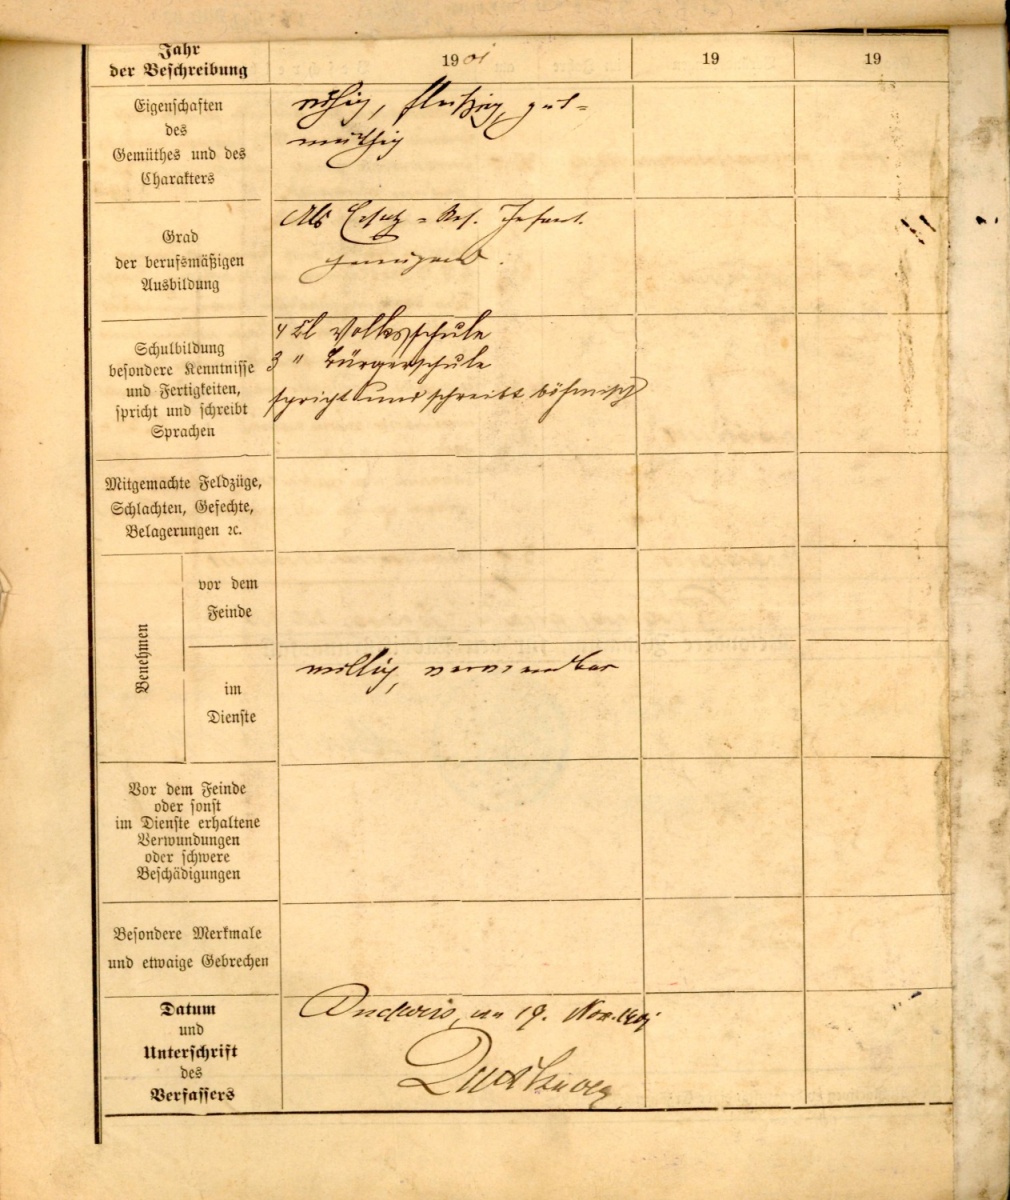 Jahr
der Beschreibung
1901
19
19
Eigenschaften
des
Gemüthes und des
Charakters
ruhig, fleißig, gut-
müthig
Grad
der berufsmäßigen
Ausbildung
Als Ersatz-Res. Infant.
genügend.
Schulbildung
besondere Kenntnisse
und Fertigkeiten,
spricht und schreibt
Sprachen
4 Cl Volksschule
3 " Bürgerschule
spricht und schreibt böhmisch
Mitgemachte Feldzüge,
Schlachten, Gefechte,
Belagerungen ꝛc.
Benehmen
vor dem
Feinde
im
Dienste
willig, verwendbar
Vor dem Feinde
oder sonst
im Dienste erhaltene
Verwundungen
oder schwere
Beschädigungen
Besondere Merkmale
und etwaige Gebrechen
Datum
und
Unterschrift
des
Verfassers
Budweis, am 19. Nov. 1901